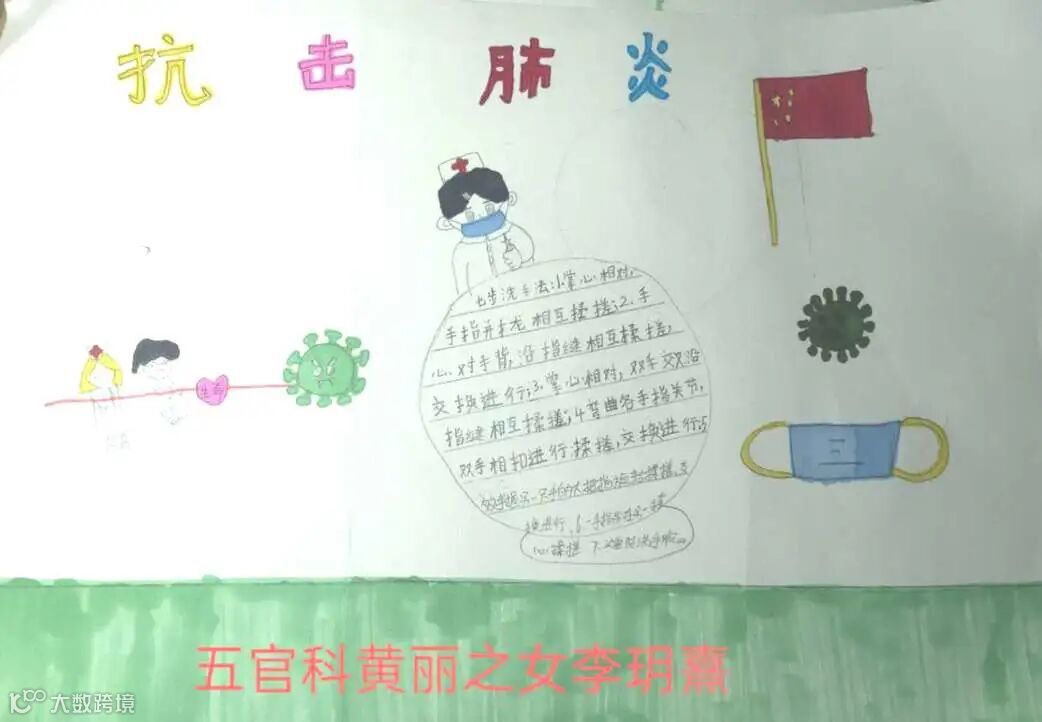 抗击肺炎
七步洗手法:1.掌心相对,
手指并拢相互揉搓;2.手
心对手背,沿指缝相互揉搓,
交换进行;3.掌心相对,双手交叉沿
指缝相互揉搓;4弯曲各手指关节,
双手相扣进行揉搓,交换进行;5
换进行,6
心揉搓 7.
生命
五官科黄丽之女李玥熹
大数跨境